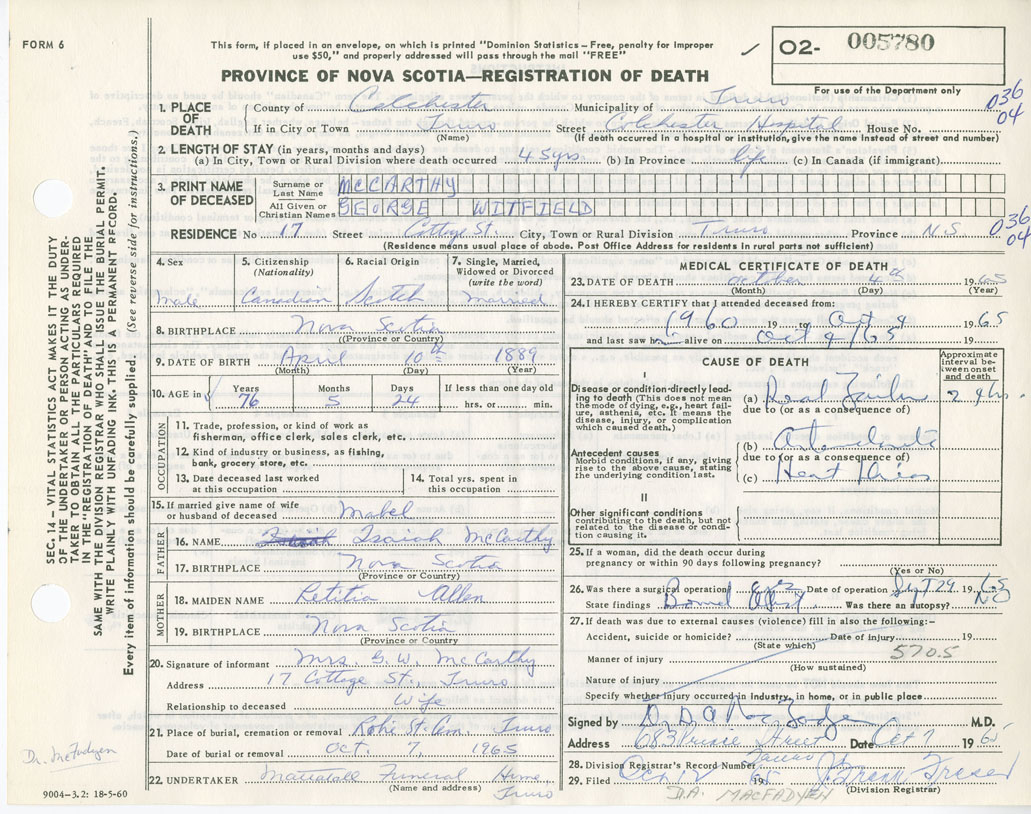 FORM 6
This form, if placed in an envelope, on which is printed "Dominion Statistics – Free, penalty for improper
use $50," and properly addressed will pass through the mail "FREE"
✓ 02- 005780
PROVINCE OF NOVA SCOTIA—REGISTRATION OF DEATH
For use of the Department only
036
04
1. PLACE OF DEATH
County of Colchester Municipality of Truro
If in City or Town Truro Street Colchester Hospital House No.
(Name) (If death occurred in a hospital or institution, give the name instead of street and number)
2. LENGTH OF STAY (in years, months and days)
(a) In City, Town or Rural Division where death occurred 45 yrs. (b) In Province life (c) In Canada (if immigrant)
3. PRINT NAME OF DECEASED
Surname or Last Name MCCARTHY
All Given or Christian Names GEORGE WITFIELD
RESIDENCE No 17 Street Cottage St. City, Town or Rural Division Truro Province N.S
036
04
(Residence means usual place of abode. Post Office Address for residents in rural parts not sufficient)
4. Sex male
5. Citizenship (Nationality) Canadian
6. Racial Origin Scotch
7. Single, Married, Widowed or Divorced (write the word) married
8. BIRTHPLACE Nova Scotia
(Province or Country)
9. DATE OF BIRTH April 10th 1889
(Month) (Day) (Year)
10. AGE in Years 76 Months 5 Days 24 If less than one day old hrs. or min.
OCCUPATION
11. Trade, profession, or kind of work as
fisherman, office clerk, sales clerk, etc.
12. Kind of industry or business, as fishing,
bank, grocery store, etc.
13. Date deceased last worked
at this occupation
14. Total yrs. spent in
this occupation
15. If married give name of wife
or husband of deceased Mabel
FATHER
16. NAME Isaiah McCarthy
17. BIRTHPLACE Nova Scotia
(Province or Country)
MOTHER
18. MAIDEN NAME Retitia Allen
19. BIRTHPLACE Nova Scotia
(Province or Country
20. Signature of informant Mrs. G. W. McCarthy
Address 17 Cottage St., Truro
Relationship to deceased Wife
21. Place of burial, cremation or removal Robie St. Cem. Truro
Date of burial or removal Oct. 7, 1965
22. UNDERTAKER Mattatall Funeral Home,
(Name and address) Truro
MEDICAL CERTIFICATE OF DEATH
23. DATE OF DEATH October 4th 1965
(Month) (Day) (Year)
24. I HEREBY CERTIFY that I attended deceased from:
1960 19 to Oct 4 1965
and last saw him alive on Oct 4/65 19
CAUSE OF DEATH
Approximate interval between onset and death
I
Disease or condition directly leading to death (This does not mean the mode of dying, e.g., heart failure, asthenia, etc. It means the disease, injury, or complication which caused death.)
(a) Renal Failure
due to (or as a consequence of)
Antecedent causes
Morbid conditions, if any, giving rise to the above cause, stating the underlying condition last.
(b)
due to (or as a consequence of)
(c) Heart Dis
II
Other significant conditions
contributing to the death, but not related to the disease or condition causing it.
25. If a woman, did the death occur during
pregnancy or within 90 days following pregnancy?
(Yes or No)
26. Was there a surgical operation Yes Date of operation Sept 29 1965
State findings Bowel Obst. Was there an autopsy? No
27. If death was due to external causes (violence) fill in also the following:–
Accident, suicide or homicide? Date of injury 19
(State which) 570.5
Manner of injury
(How sustained)
Nature of injury
Specify whether injury occurred in industry, in home, or in public place
Signed by M.D.
Address 683 Prince Street Date Oct 7 1965
28. Division Registrar's Record Number
29. Filed Oct 12 1965
(Division Registrar)
D.A. MACFADYEN
SEC. 14 – VITAL STATISTICS ACT MAKES IT THE DUTY
OF THE UNDERTAKER OR PERSON ACTING AS UNDER-
TAKER TO OBTAIN ALL THE PARTICULARS REQUIRED
IN THE "REGISTRATION OF DEATH" AND TO FILE THE
SAME WITH THE DIVISION REGISTRAR WHO SHALL ISSUE THE BURIAL PERMIT.
WRITE PLAINLY WITH UNFADING INK. THIS IS A PERMANENT RECORD.
Every item of information should be carefully supplied. (See reverse side for instructions.)
Dr. McFadyen
9004-3.2: 18-5-60